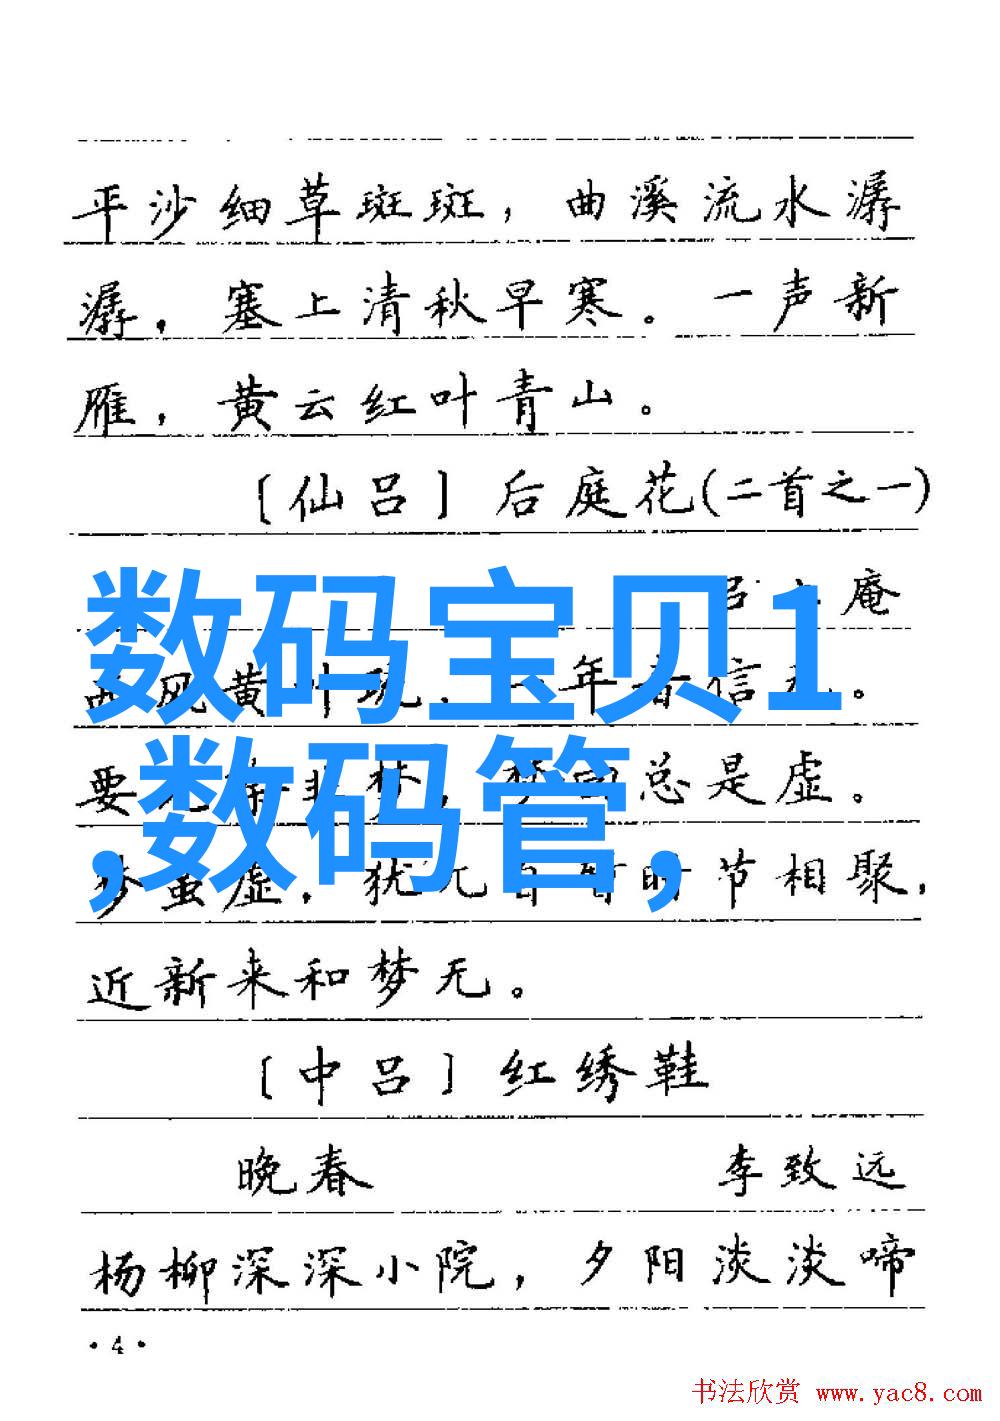 平沙细草斑斑，曲溪流水潺
潺，塞上清秋早寒。一声新
雁，黄云红叶青山。
〔仙吕〕后庭花(二首之一)
吕 庵
数码宝贝1
西风黄叶 年音信无。
,数码管,
要 梦 总是虚。
梦虽虚，犹 时节相聚，
近新来和梦无。
〔中吕〕红绣鞋
晚春 李致远
杨柳深深小院，夕阳淡淡啼
·4·
书法欣赏 www.yac8.com